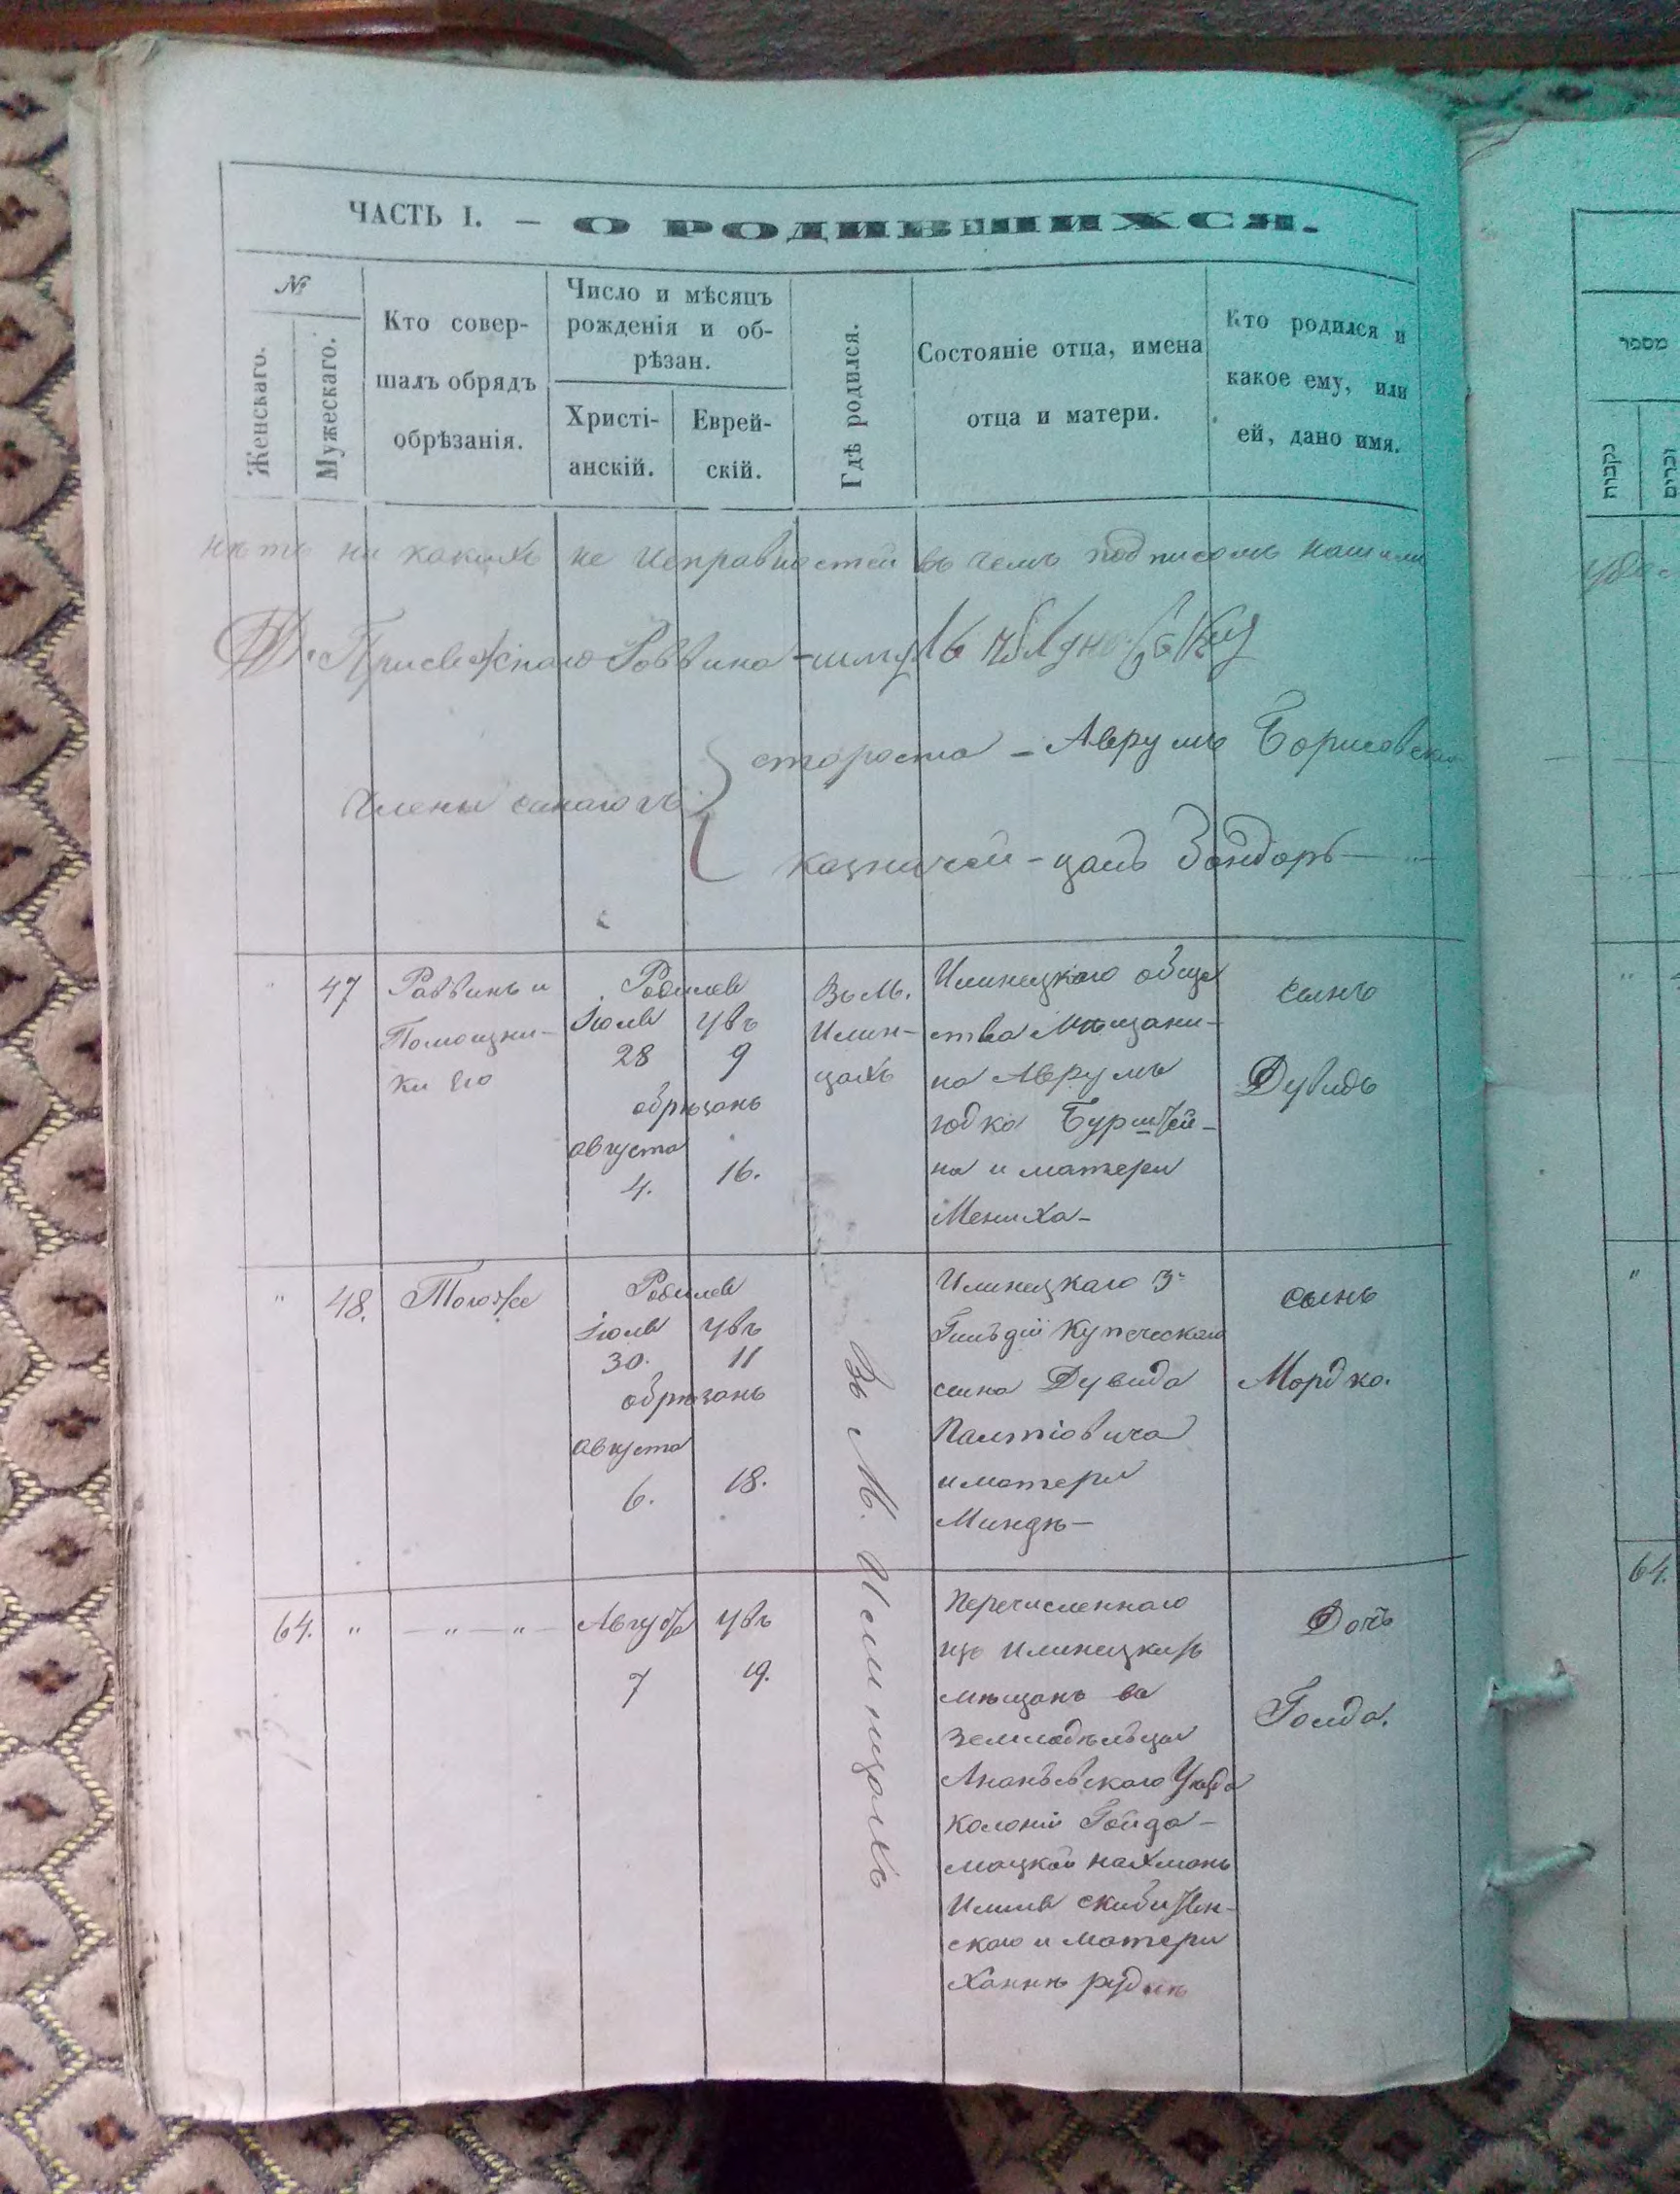 ЧАСТЬ I. — О РОДИВШИХСЯ.
№
Женскаго.
Мужескаго.
Кто совер-
шалъ обрядъ
обрѣзанія.
Число и мѣсяцъ
рожденія и об-
рѣзан.
Христі-
анскій.
Еврей-
скій.
Гдѣ родился.
Состояніе отца, имена
отца и матери.
Кто родился и
какое ему, или
ей, дано имя.
нѣтъ ни какихъ не исправностей въ чемъ подписомъ нашими
Раввина
Члены синагогъ
староста - Аврумъ Борисовскій
казначей - Зандоръ
" 47 Раввинъ и
Помощни-
ки его
Родился
Іюля 28 Увъ 9
обрѣзанъ
августа
4. 16.
Въ М.
Илин-
цахъ
Илинецкаго обще
ства Мѣщани-
на Аврумъ
Юдко Бурштей-
на и матери
Мениха-
сынъ
Дувидъ
" 48. Тогоже
Родился
Іюля 30. Увъ 11
обрѣзанъ
августа
6. 18.
Въ М. Илинцахъ
Илинецкаго 3й
Гильдіи Купеческаго
сына Дувида
Палтіовича
и матери
Миндѣ-
сынъ
Мордко.
64. " — " — " —
Август 7 Увъ 19.
Перечисленнаго
изъ Илинецкихъ
мѣщанъ въ
земледѣльца
Ананьевскаго Уѣзда
колоніи Гайда-
мацкой Нахманъ
скибитен-
скаго и матери
Ханнѣ
Дочь
Голда.
מספר
נקבות
זכרים
"
"
64.